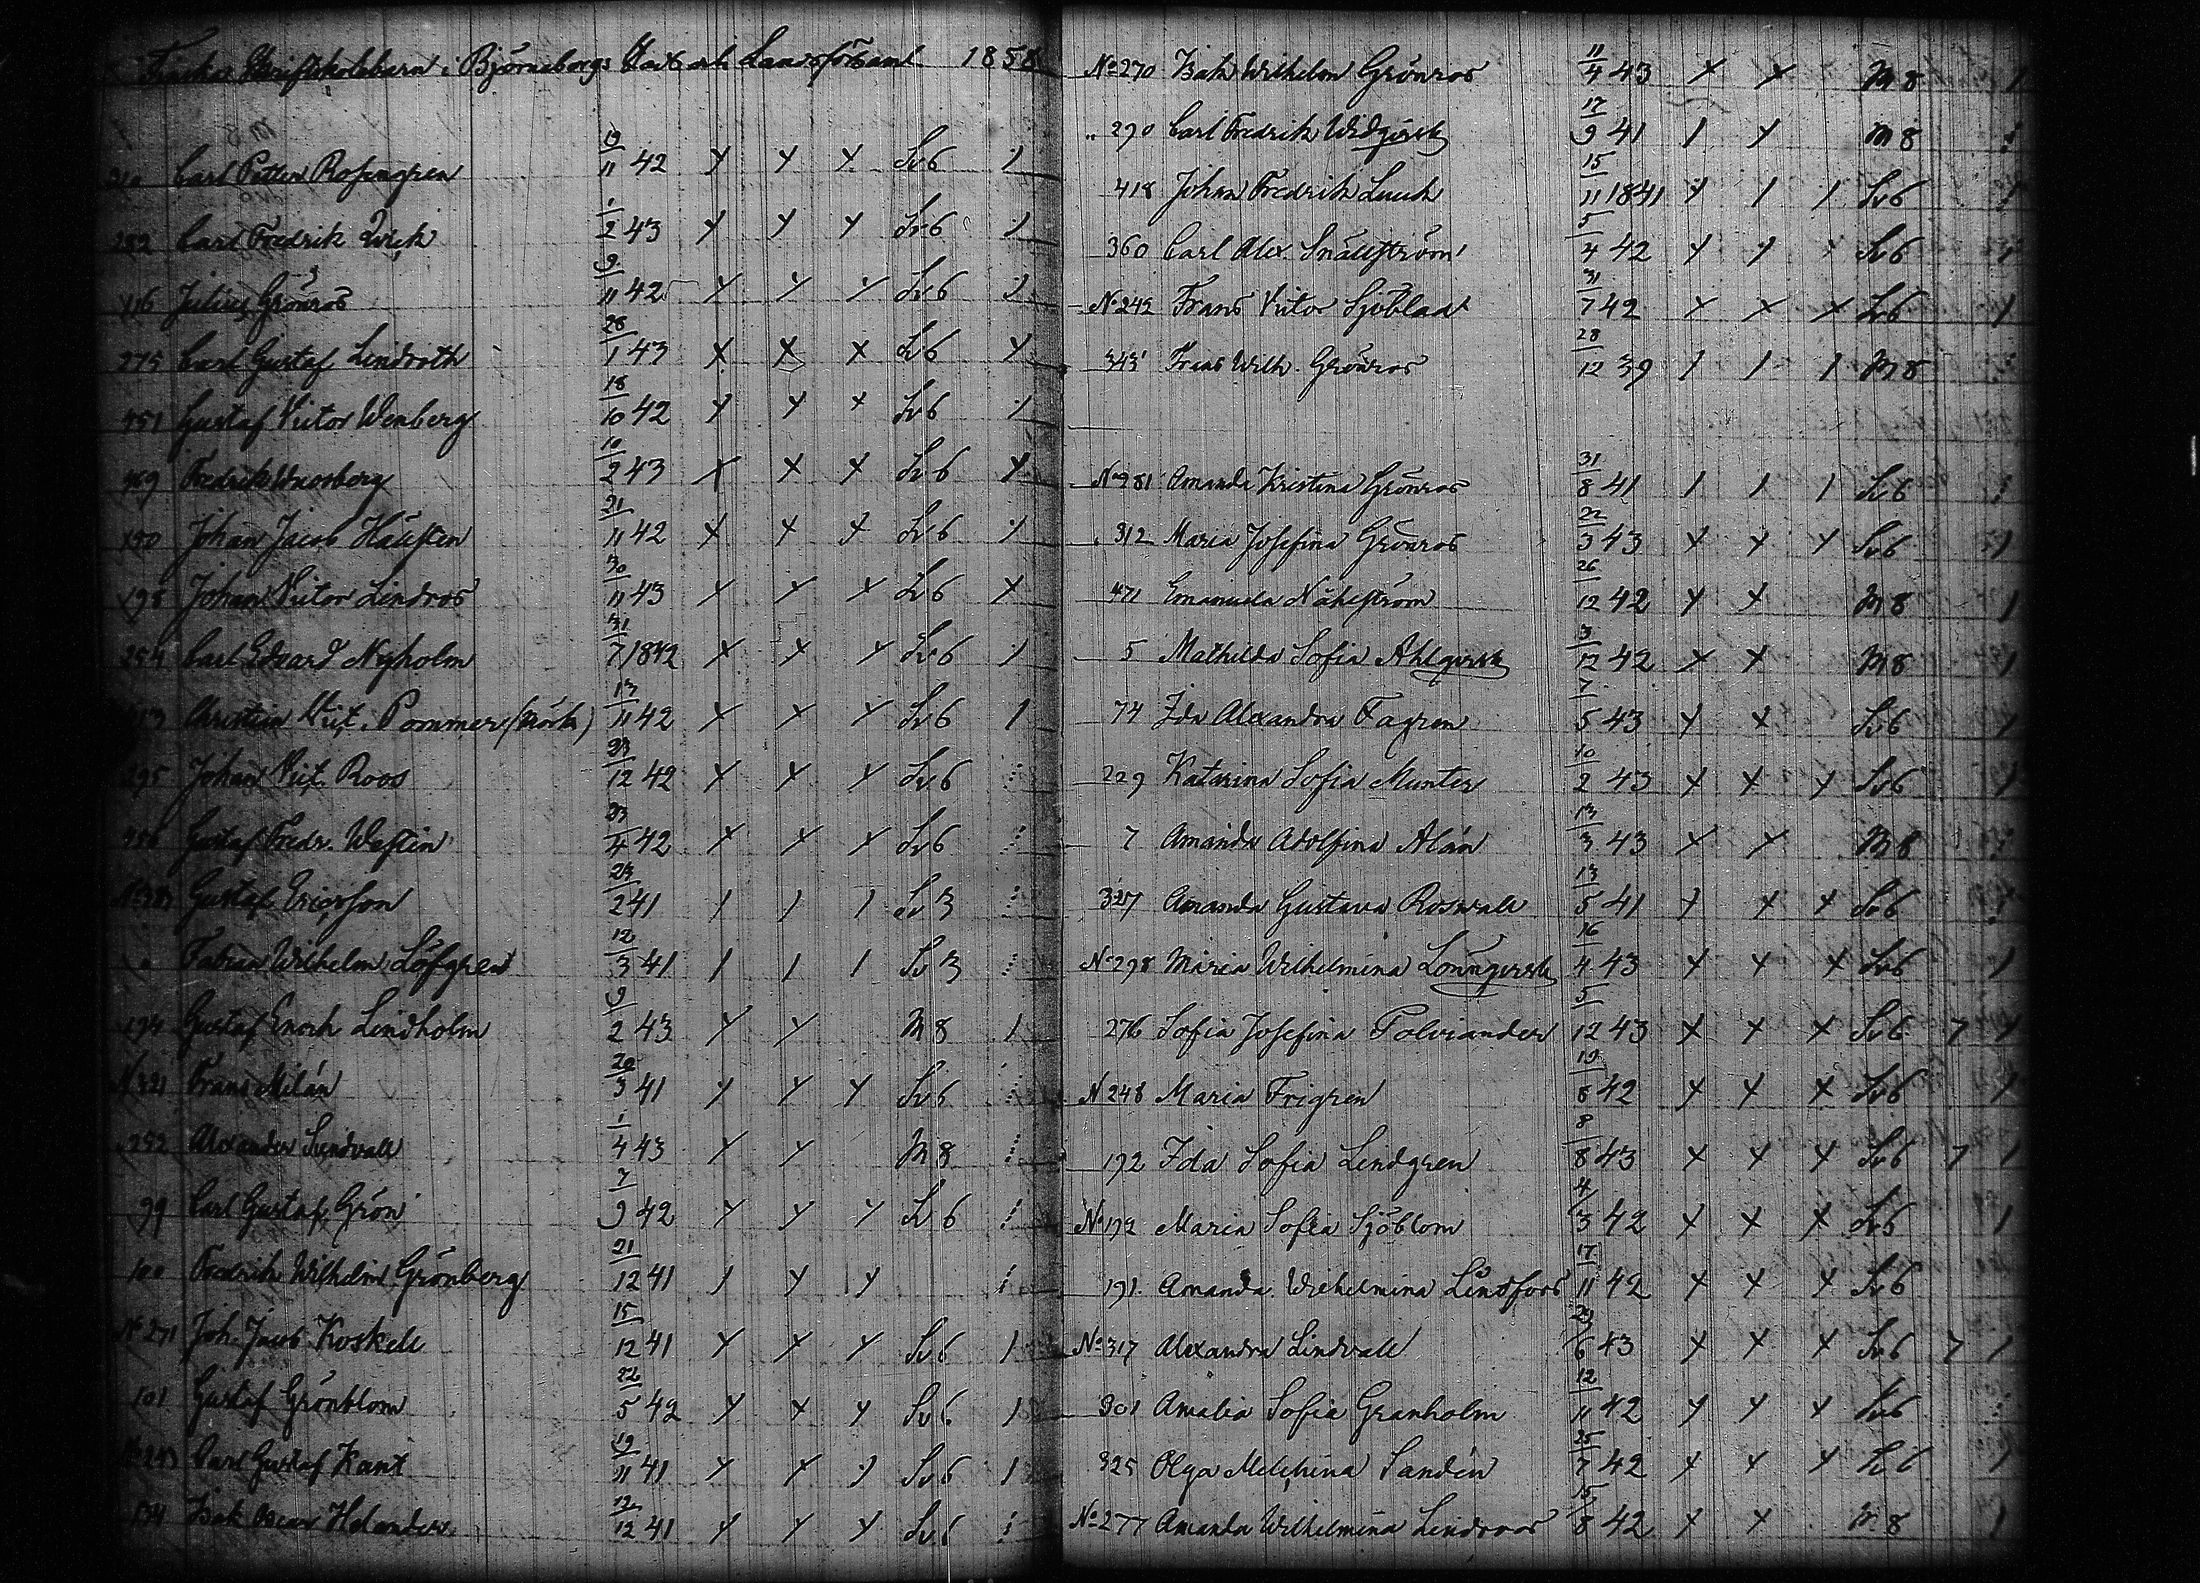 Finska Skriftskolebarn i Björneborgs Stads och Landsförsaml 1858
Carl Petter Rosengren 19/11 42 x x x Sv 6 1
282 Carl Fredrik Wek 1/2 43 x x x Sv 6 1
116 Julius Grönros 9/11 42 x x x Sv 6 1
275 Carl Gustaf Lindroth 28/1 43 x x x Sv 6 x
451 Gustaf Victor Wenberg 18/10 42 x x x Sv 6 1
469 Fredrik 10/2 43 x x x Sv 6 x
150 Johan Jacob Hällsten 21/11 42 x x x Sv 6 1
198 Johan Victor Lindros 30/11 43 x x x Sv 6 x
254 Carl Edvard Nyholm 31/7 1842 x x x Sv 6 1
Christian Vict. Pommer (Mörk) 13/11 42 x x x Sv 6 1
295 Johan Vict. Roos 23/12 42 x x x Sv 6
Gustaf Fredr. Westin 23/4 42 x x x Sv 6
Gustaf Ericsson 23/2 41 1 1 1 Sv 3
Fabian Wilhelm Löfgren 12/3 41 1 1 1 Sv 3
194 Gustaf Enoch Lindholm 9/2 43 x x M 8 1
N 321 Frans Milán 20/3 41 x x x Sv 6
252 Alexander Sundvall 1/4 43 x x M 8
99 Carl Gustaf Grön 7/9 42 x x x Sv 6
100 Fredrik Wilhelm Grönberg 21/12 41 1 x x
No 271 Joh. Jacob Koskell 15/12 41 x x x Sv 6 1
101 Gustaf Grönblom 22/5 42 x x x Sv 6 1
Carl Gustaf Kant 19/11 41 x x x Sv 6 1
134 Isak Oscar Helander 12/12 41 x x x Sv 6
No 270 Isak Wilhelm Grönros 11/4 43 x x M 8 1
" 290 Carl Fredrik Widqvist 17/9 41 1 x M 8
418 Johan Fredrik Luuk 15/11 1841 x 1 1 Sv 6
360 Carl Alex. Snällström 5/4 42 x x Sv 6
No 242 Frans Victor Sjöblad 31/7 42 x x x Sv 6 1
343 Frans Wilh. Grönros 28/12 39 1 1 1 M 8
No 281 Amanda Kristina Grönros 31/8 41 1 1 1 Sv 6
312 Maria Josefina Grönros 22/3 43 x x x Sv 6 1
471 Emanuela Nåhlström 26/12 42 x x M 8 1
5 Mathilda Sofia Ahlqvist 3/12 42 x x M 8 1
74 Ida Alexandra Fagren 7/5 43 x x Sv 6 1
229 Katarina Sofia Munter 10/2 43 x x x Sv 6
7 Amanda Adolfina Alán 13/3 43 x x M 8
327 Amanda Gustava Roswall 13/5 41 x x x Sv 6
No 298 Maria Wilhelmina Lönnqvist 16/4 43 x x x Sv 6 1
276 Sofia Josefina Polviander 5/12 43 x x x Sv 6 7 x
N 248 Maria Frigren 19/8 42 x x x Sv 6 1
192 Ida Sofia Lindgren 8/8 43 x x x Sv 6 7 1
No 172 Maria Sofia Sjöblom 4/3 42 x x x Sv 6 1
191 Amanda Wilhelmina Lindfors 17/11 42 x x x Sv 6
No 317 Alexandra Lindvall 29/6 43 x x x Sv 6 7 1
301 Amalia Sofia Granholm 12/11 42 x x x Sv 6
325 Olga Melchina Sandén 25/7 42 x x x Sv 6 1
No 277 Amanda Wilhelmina Lindroos 15/8 42 x x M 8 1